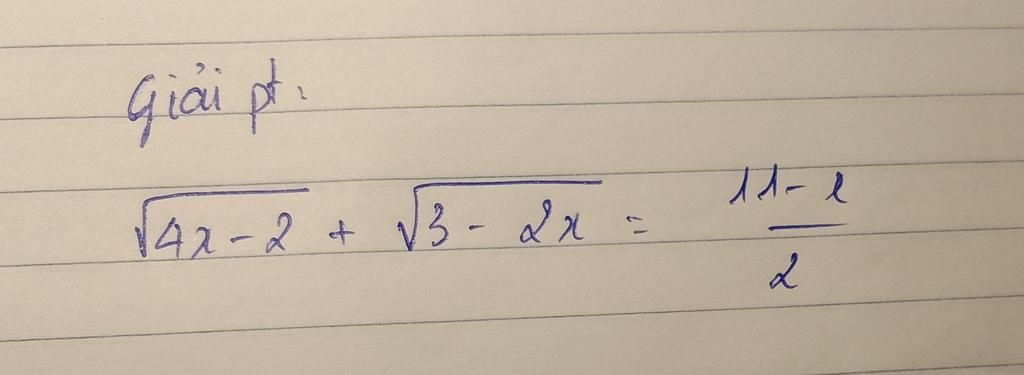 Giải pt:
√(4x - 2) + √(3 - 2x) = (11 - x)/2